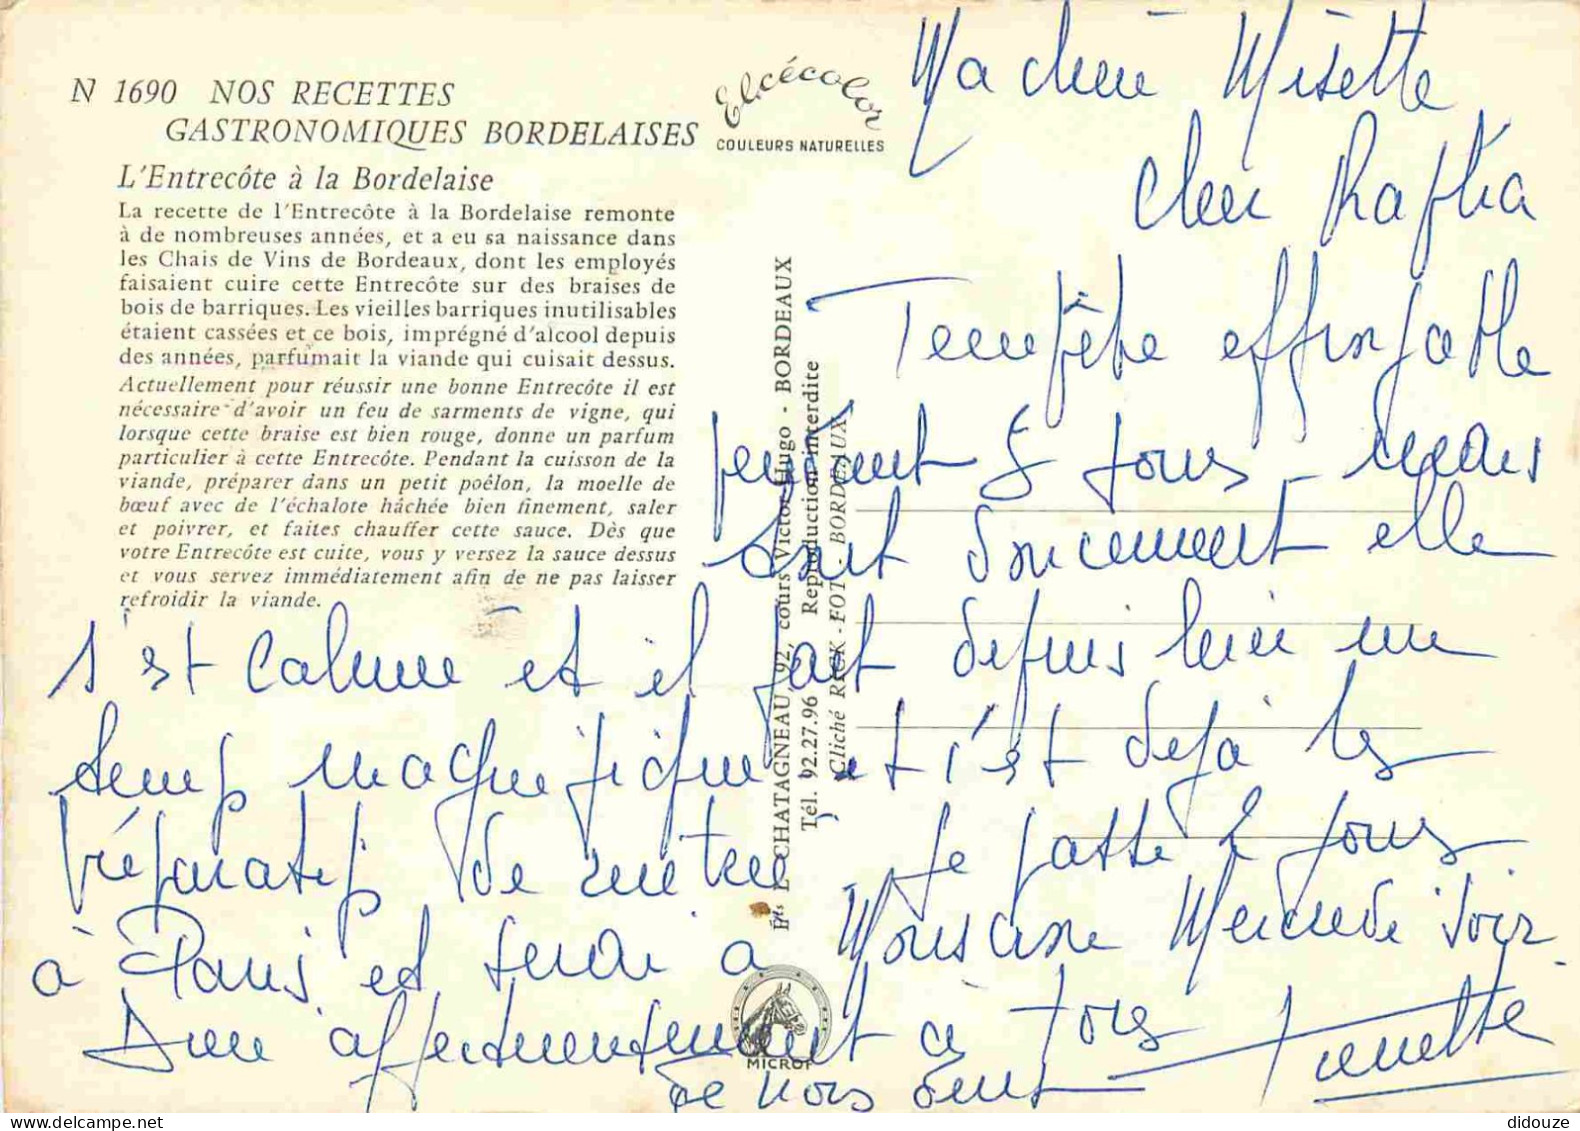 N 1690 NOS RECETTES
GASTRONOMIQUES BORDELAISES
L'Entrecôte à la Bordelaise
La recette de l'Entrecôte à la Bordelaise remonte
à de nombreuses années, et a eu sa naissance dans
les Chais de Vins de Bordeaux, dont les employés
faisaient cuire cette Entrecôte sur des braises de
bois de barriques. Les vieilles barriques inutilisables
étaient cassées et ce bois, imprégné d'alcool depuis
des années, parfumait la viande qui cuisait dessus.
Actuellement pour réussir une bonne Entrecôte il est
nécessaire d'avoir un feu de sarments de vigne, qui
lorsque cette braise est bien rouge, donne un parfum
particulier à cette Entrecôte. Pendant la cuisson de la
viande, préparer dans un petit poêlon, la moelle de
bœuf avec de l'échalote hâchée bien finement, saler
et poivrer, et faites chauffer cette sauce. Dès que
votre Entrecôte est cuite, vous y versez la sauce dessus
et vous servez immédiatement afin de ne pas laisser
refroidir la viande.
Elcécolor
COULEURS NATURELLES
Éts L. CHATAGNEAU, 92, cours Victor-Hugo - BORDEAUX
Tél. 92.27.96 Reproduction interdite
Cliché RECK - FOT BORDEAUX
MICROF
Ma chère Misette
Cher
Tempête effroyable
pendant 8 jours mais
tout doucement elle
s'est calmée et il fait depuis hier un
temps magnifique et c'est déjà les
préparatifs de Je passe 2 jours
à Paris et serai à Mercredi soir
Bien affectueusement à tous
de nous deux
didouze